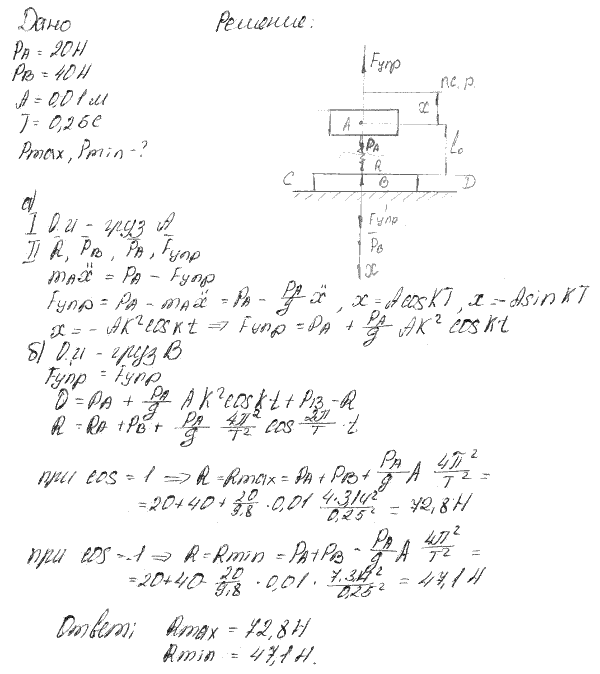 Дано Решение:
PA = 20H
PB = 40H
A = 0,01 м
T = 0,25 с
Pmax, Pmin - ?
Fупр
п.с.р.
x
A
PA
l₀
R
C B D
F'упр
P̅B
x
а)
I О.и - груз А
II R̅, P̅B, P̅A, F̅упр
mAẍ = PA - Fупр
Fупр = PA - mAẍ = PA - PA/g ẍ, x = A cos KT, ẋ = -A sin KT
ẍ = - AK² cos kt ⇒ Fупр = PA + PA/g AK² cos kt
б) О.и - груз В
Fупр = Fупр
0 = PA + PA/g AK² cos k·t + PB - R
R = PA + PB + PA/g 4π²/T² cos 2π/T · t
при cos = 1 ⇒ R = Rmax = PA + PB + PA/g A 4π²/T² =
= 20+40+ 20/9,8 · 0,01 4·3.14²/0,25² = 72,8 H
при cos = -1 ⇒ R = Rmin = PA + PB - PA/g A 4π²/T² =
= 20+40- 20/9,8 · 0,01 · 7.3.14²/0,25² = 47,1 H
Ответ; Rmax = 72,8 H
Rmin = 47,1 H.